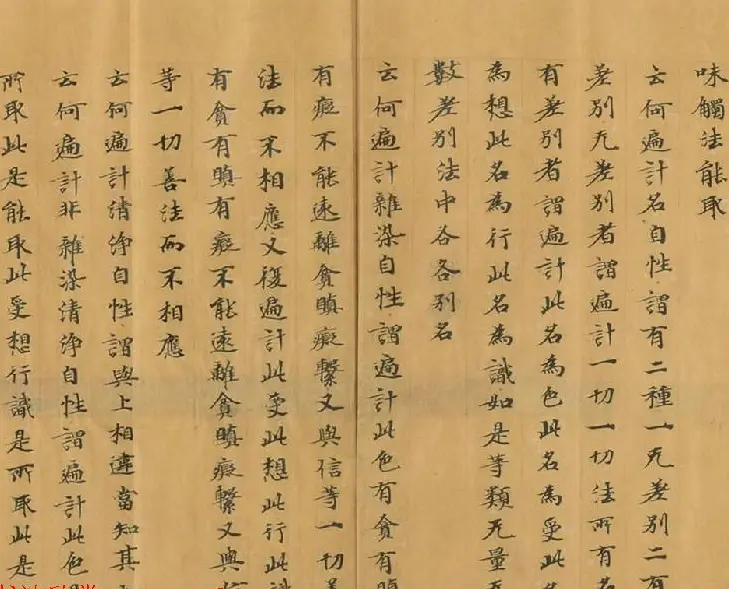 味觸法能取
云何遍計名自性謂有二種一无差別二有
差別无差別者謂遍計一切一切法所有名
有差別者謂遍計此名為色此名為受此名
為想此名為行此名為識如是等類无量
數差別法中各各別名
云何遍計雜染自性謂遍計此色有貪有瞋
有癡不能遠離貪瞋癡繫又與信等一切
法而不相應又復遍計此受此想此行此識
有貪有瞋有癡不能遠離貪瞋癡繫又與
等一切善法而不相應
云何遍計清淨自性謂與上相違當知其
云何遍計非雜染清淨自性謂遍計此色
所取此是能取此受想行識是所取此是